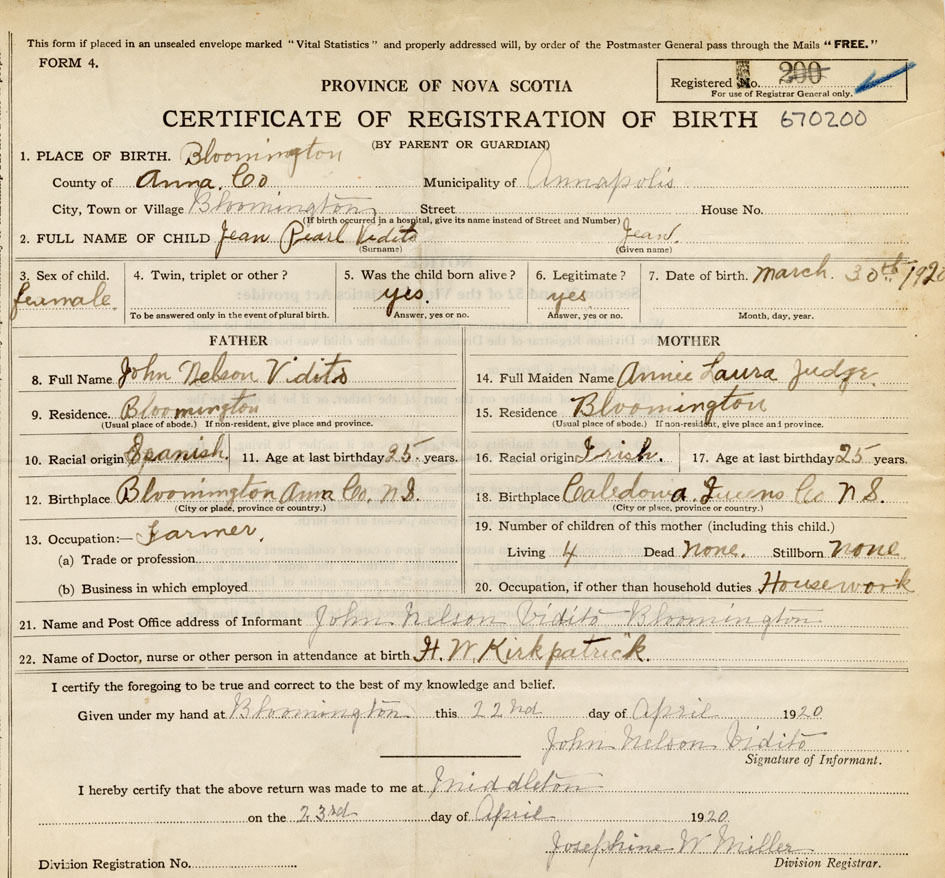 This form if placed in an unsealed envelope marked "Vital Statistics" and properly addressed will, by order of the Postmaster General pass through the Mails "FREE."
FORM 4.
Registered No. 200
For use of Registrar General only.
PROVINCE OF NOVA SCOTIA
CERTIFICATE OF REGISTRATION OF BIRTH 670200
(BY PARENT OR GUARDIAN)
1. PLACE OF BIRTH. Bloomington
County of Anna. Co Municipality of Annapolis
City, Town or Village Bloomington Street House No.
(If birth occurred in a hospital, give its name instead of Street and Number)
2. FULL NAME OF CHILD Jean Pearl Vidito Jean.
(Surname) (Given name)
3. Sex of child. 4. Twin, triplet or other? 5. Was the child born alive? 6. Legitimate? 7. Date of birth. March. 30th 1920
female yes. yes
To be answered only in the event of plural birth. Answer, yes or no. Answer, yes or no. Month, day, year.
FATHER MOTHER
8. Full Name John Nelson Vidito 14. Full Maiden Name Annie Laura Judge.
9. Residence. Bloomington 15. Residence Bloomington
(Usual place of abode.) If non-resident, give place and province. (Usual place of abode.) If non-resident, give place and province.
10. Racial origin Spanish. 11. Age at last birthday 25 years. 16. Racial origin Irish. 17. Age at last birthday 25 years.
12. Birthplace Bloomington Anna Co. N.S. 18. Birthplace Caledonia. Queens Co N S.
(City or place, province or country.) (City or place, province or country.)
13. Occupation:— Farmer. 19. Number of children of this mother (including this child.)
(a) Trade or profession Living 4 Dead None. Stillborn None
(b) Business in which employed 20. Occupation, if other than household duties Housework
21. Name and Post Office address of Informant John Nelson Vidito Bloomington
22. Name of Doctor, nurse or other person in attendance at birth H. W. Kirkpatrick.
I certify the foregoing to be true and correct to the best of my knowledge and belief.
Given under my hand at Bloomington this 22nd day of April 1920
John Nelson Vidito
Signature of Informant.
I hereby certify that the above return was made to me at Middleton
on the 23rd day of April 1920
Josephine W Miller
Division Registration No. Division Registrar.